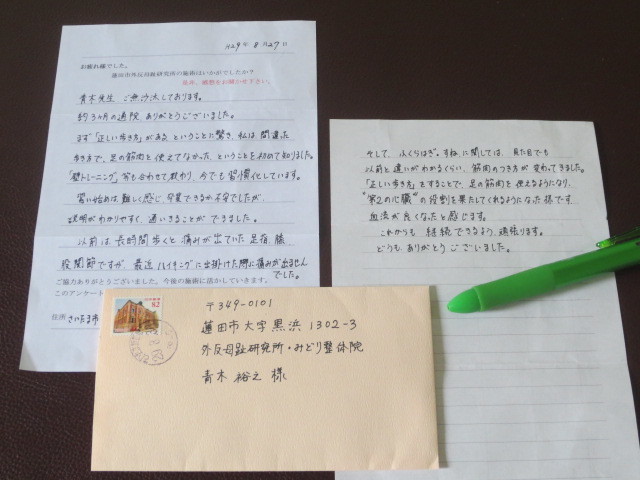 H29年 8月27日
お疲れ様でした。
蓮田市外反母趾研究所の施術はいかがでしたか？
是非、感想をお聞かせ下さい。
青木先生 ご無沙汰しております。
約3ヵ月の通院 ありがとうございました。
まず「正しい歩き方」がある ということに驚き、私は 間違った
歩き方で、足の筋肉を 使えてなかった ということを初めて知りました。
「壁トレーニング」等も合わせて教わり、今でも習慣化しています。
習い始めは 難しく感じ 卒業できるか不安でしたが
説明がわかりやすく、通いきることが できました。
以前は、長時間歩くと 痛みが出ていた 足指、膝
股関節ですが、最近 ハイキングに出掛けた際に痛みが出ません
でした。
ご協力ありがとうございました。今後の施術に活かしていきます。
このアンケート
住所 さいたま市
そして、ふくらはぎ。すねに関しては、見た目でも
以前と違いがわかるくらい、筋肉のつき方が 変わってきました。
「正しい歩き方」をすることで、足の筋肉を使えるようになり、
"第2の心臓"の役割を果たしてくれるようになった様です。
血流が良くなったと感じます。
これからも 継続できるよう、頑張ります。
どうも ありがとう ございました。
82
〒349-0101
蓮田市大字黒浜 1302-3
外反母趾研究所・みどり整体院
青木 裕之 様